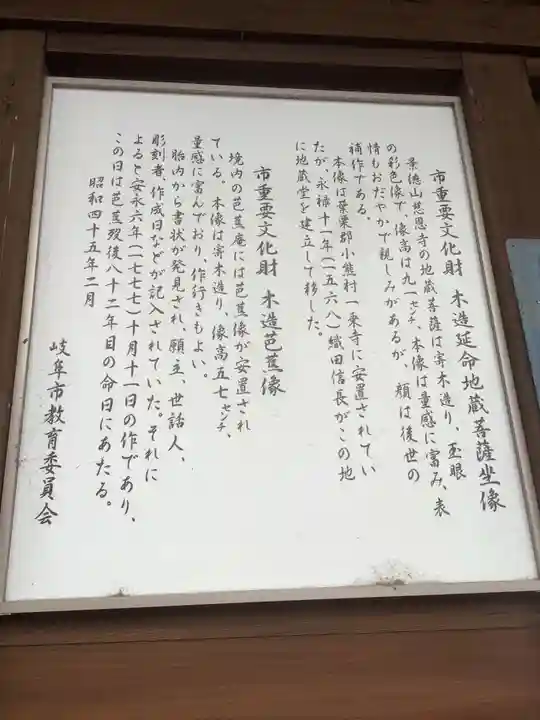 市重要文化財　木造延命地蔵菩薩坐像
景徳山慈恩寺の地蔵菩薩は寄木造り、玉眼
の彩色像で、像高は九一センチ、本像は量感に富み、表
情もおだやかで親しみがあるが、顔は後世の
補作である。
本像は葉栗郡小熊村一乗寺に安置されてい
たが、永禄十一年(一五六八)織田信長がこの地
に地蔵堂を建立して移した。
市重要文化財　木造芭蕉像
境内の芭蕉庵には芭蕉像が安置され
ている。本像は寄木造り、像高五七センチ、
量感に富んでおり、作行きもよい。
胎内から書状が発見され、願主、世話人、
彫刻者、作成日などが記入されていた。それに
よると安永六年(一七七七)十月十一日の作であり、
この日は芭蕉歿後八十二年目の命日にあたる。
昭和四十五年二月
岐阜市教育委員会